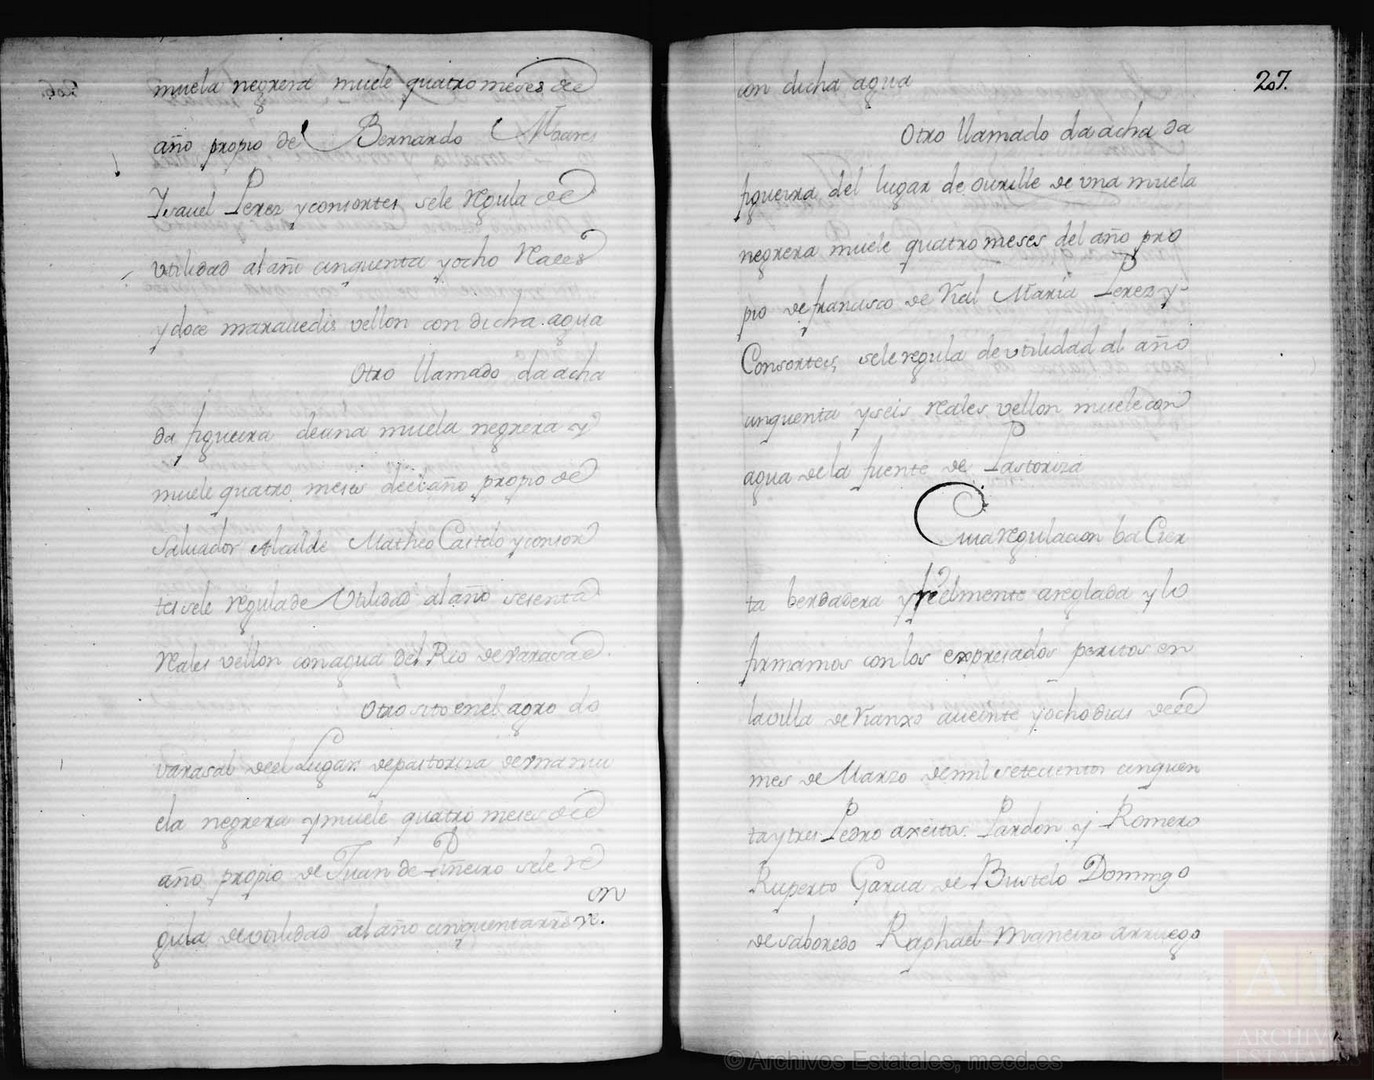 muela negrera muele quatro meses de el
año propio de Bernardo Moares
Ysauel Perez y consortes sele regula de
vtilidad al año cinquenta y ocho Reales
y doce marauedis vellon con dicha agua
Otro llamado da acha
da figueira de una muela negrera y
muele quatro meses de el año propio de
Saluador Alcalde Matheo Castelo y consor
tes sele regula de Vtilidad al año sesenta
reales vellon con agua del Rio de varasal.
Otro sito en el agro do
varasal de el Lugar de pastoriza de vna mu
ela negrera y muele quatro meses de el
año propio de Juan de Piñeiro sele re
gula de vtilidad al año cinquenta rrs ve.on
con dicha agua
207.
Otro llamado da acha da
figueira del lugar de ourille de vna muela
negrera muele quatro meses del año pro
pio de francisco de Rial Maria Perez y
Consortes, sele regula de vtilidad al año
cinquenta y seis reales vellon muele con
agua de la fuente de Pastoriza
Cuia regulacion ba Cier
ta berdadera y fielmente areglada y lo
firmamos con los expresados peritos en
la villa de Rianxo a veinte y ocho dias de el
mes de Marzo de mil setecientos cinquen
ta y tres Pedro axeitos. Pardon y Romero
Ruperto Garcia de Bustelo Domingo
de saboredo Raphael Maneiro arruego
© Archivos Estatales, mecd.es
ARCHIVOS
ESTATALES